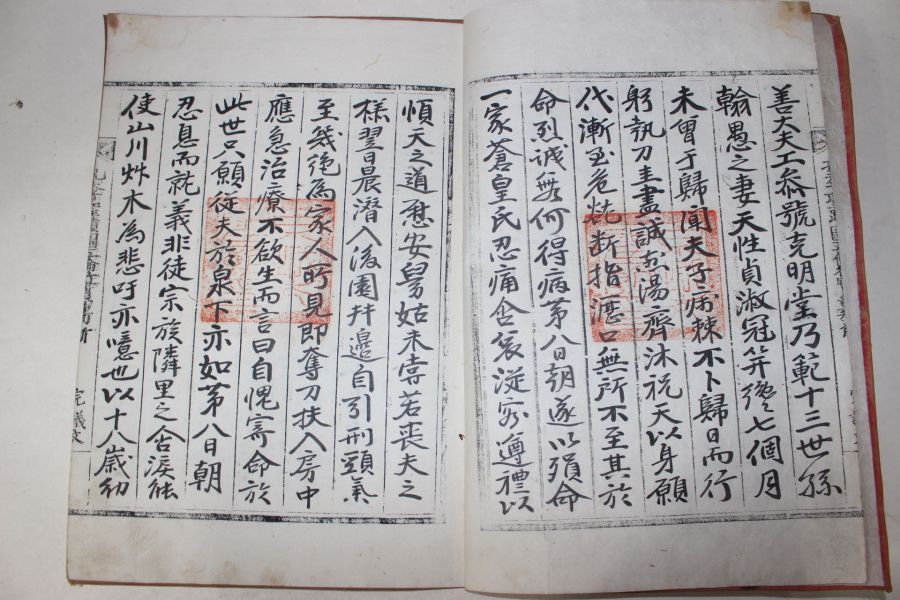 善大夫工參號克明堂乃範十三世孫
翰愚之妻天性貞淑冠笄纔七個月
未曾于歸聞夫子病棘不卜歸日而行
躬執刀圭盡誠於湯齊沐祝天以身願
代漸至危㷀断指灑口無所不至其於
命烈誠無何得病第八日朝遂以殞命
一家蒼皇氏忍痛含哀從容遵禮以
順天之道慰安舅姑未嘗若喪夫之
樣翌日晨潛入後園井邊自引刑頸氣
至幾絕為家人所見即奪刀扶入房中
應急治療不欲生而言曰自愧寄命於
此世只願從夫於泉下亦如第八日朝
忍息而就義非徒宗族隣里之含淚能
使山川艸木為悲吁亦噫也以十八歲幼
完議文